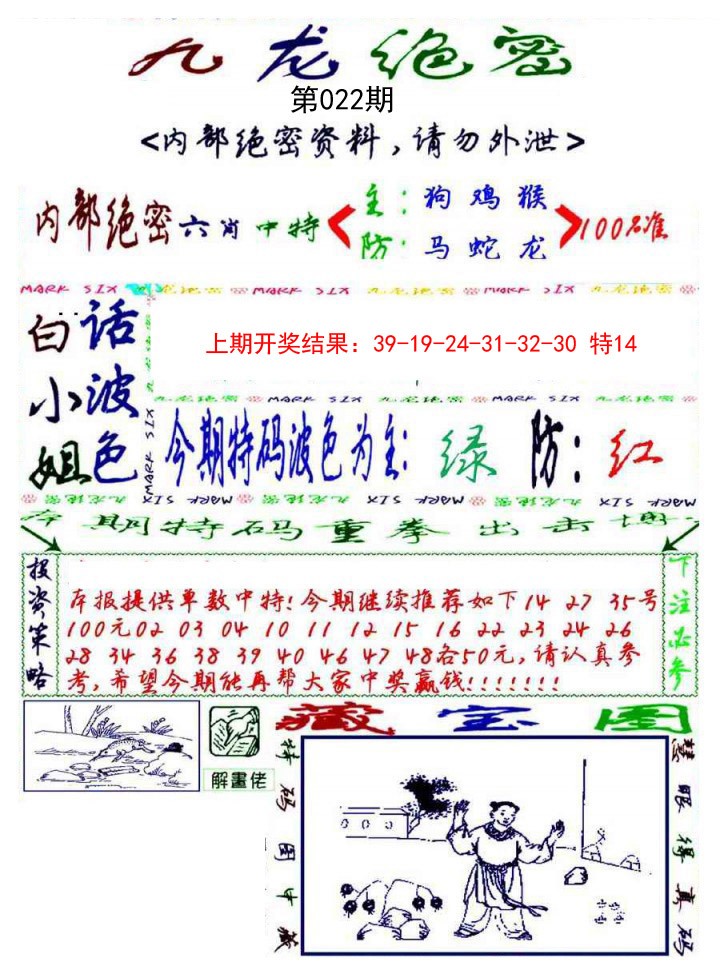 九龙绝密
第022期
<内部绝密资料,请勿外泄>
内部绝密六肖中特
主:狗 鸡 猴
防:马 蛇 龙
100%准
MARK SIX 九龙绝密 MARK SIX 九龙绝密 MARK SIX 九龙绝密
白小姐
话波色
上期开奖结果：39-19-24-31-32-30 特14
九龙绝密 MARK SIX 九龙绝密 MARK SIX 九龙绝密
今期特码波色为主:绿 防:红
九龙绝密 MARK SIX 九龙绝密 MARK SIX 九龙绝密 MARK SIX
本期特码重拳出击博
投资策略
本报提供单数中特!今期继续推荐如下14 27 35号
100元02 03 04 10 11 12 15 16 22 23 24 26
28 34 36 38 39 40 46 47 48各50元,请认真参
考,希望今期能再帮大家中奖赢钱!!!!!!!
下注必参
解畫佬
藏宝图
特码图中藏
慧眼得真码